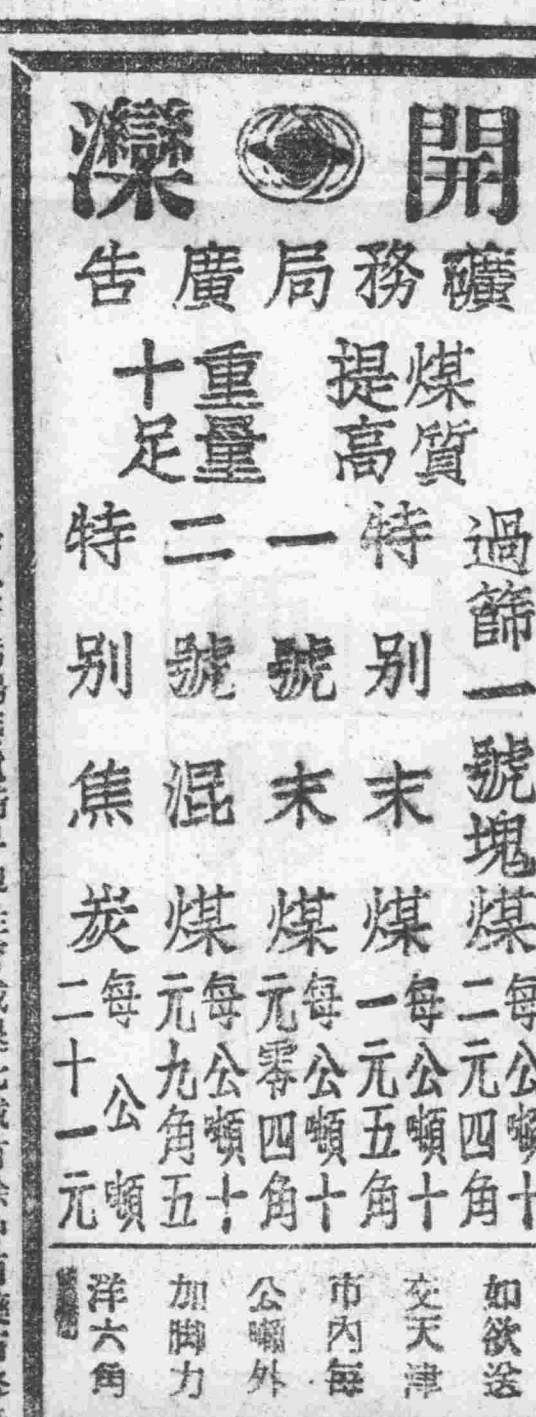 開灤
礦務局廣告
煤質提高
重量十足
過篩一號塊煤 每公噸十二元四角
特別末煤 每公噸十一元五角
一號末煤 每公噸十元零四角
二號混煤 每公噸十元九角五
特別焦炭 每公噸二十一元
如欲送
交天津
市內每
公噸外
加脚力
洋六角